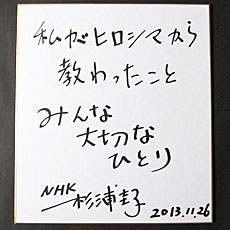 私がヒロシマから
教わったこと
みんな
大切な
ひとり
NHK
杉浦圭子
2013.11.26